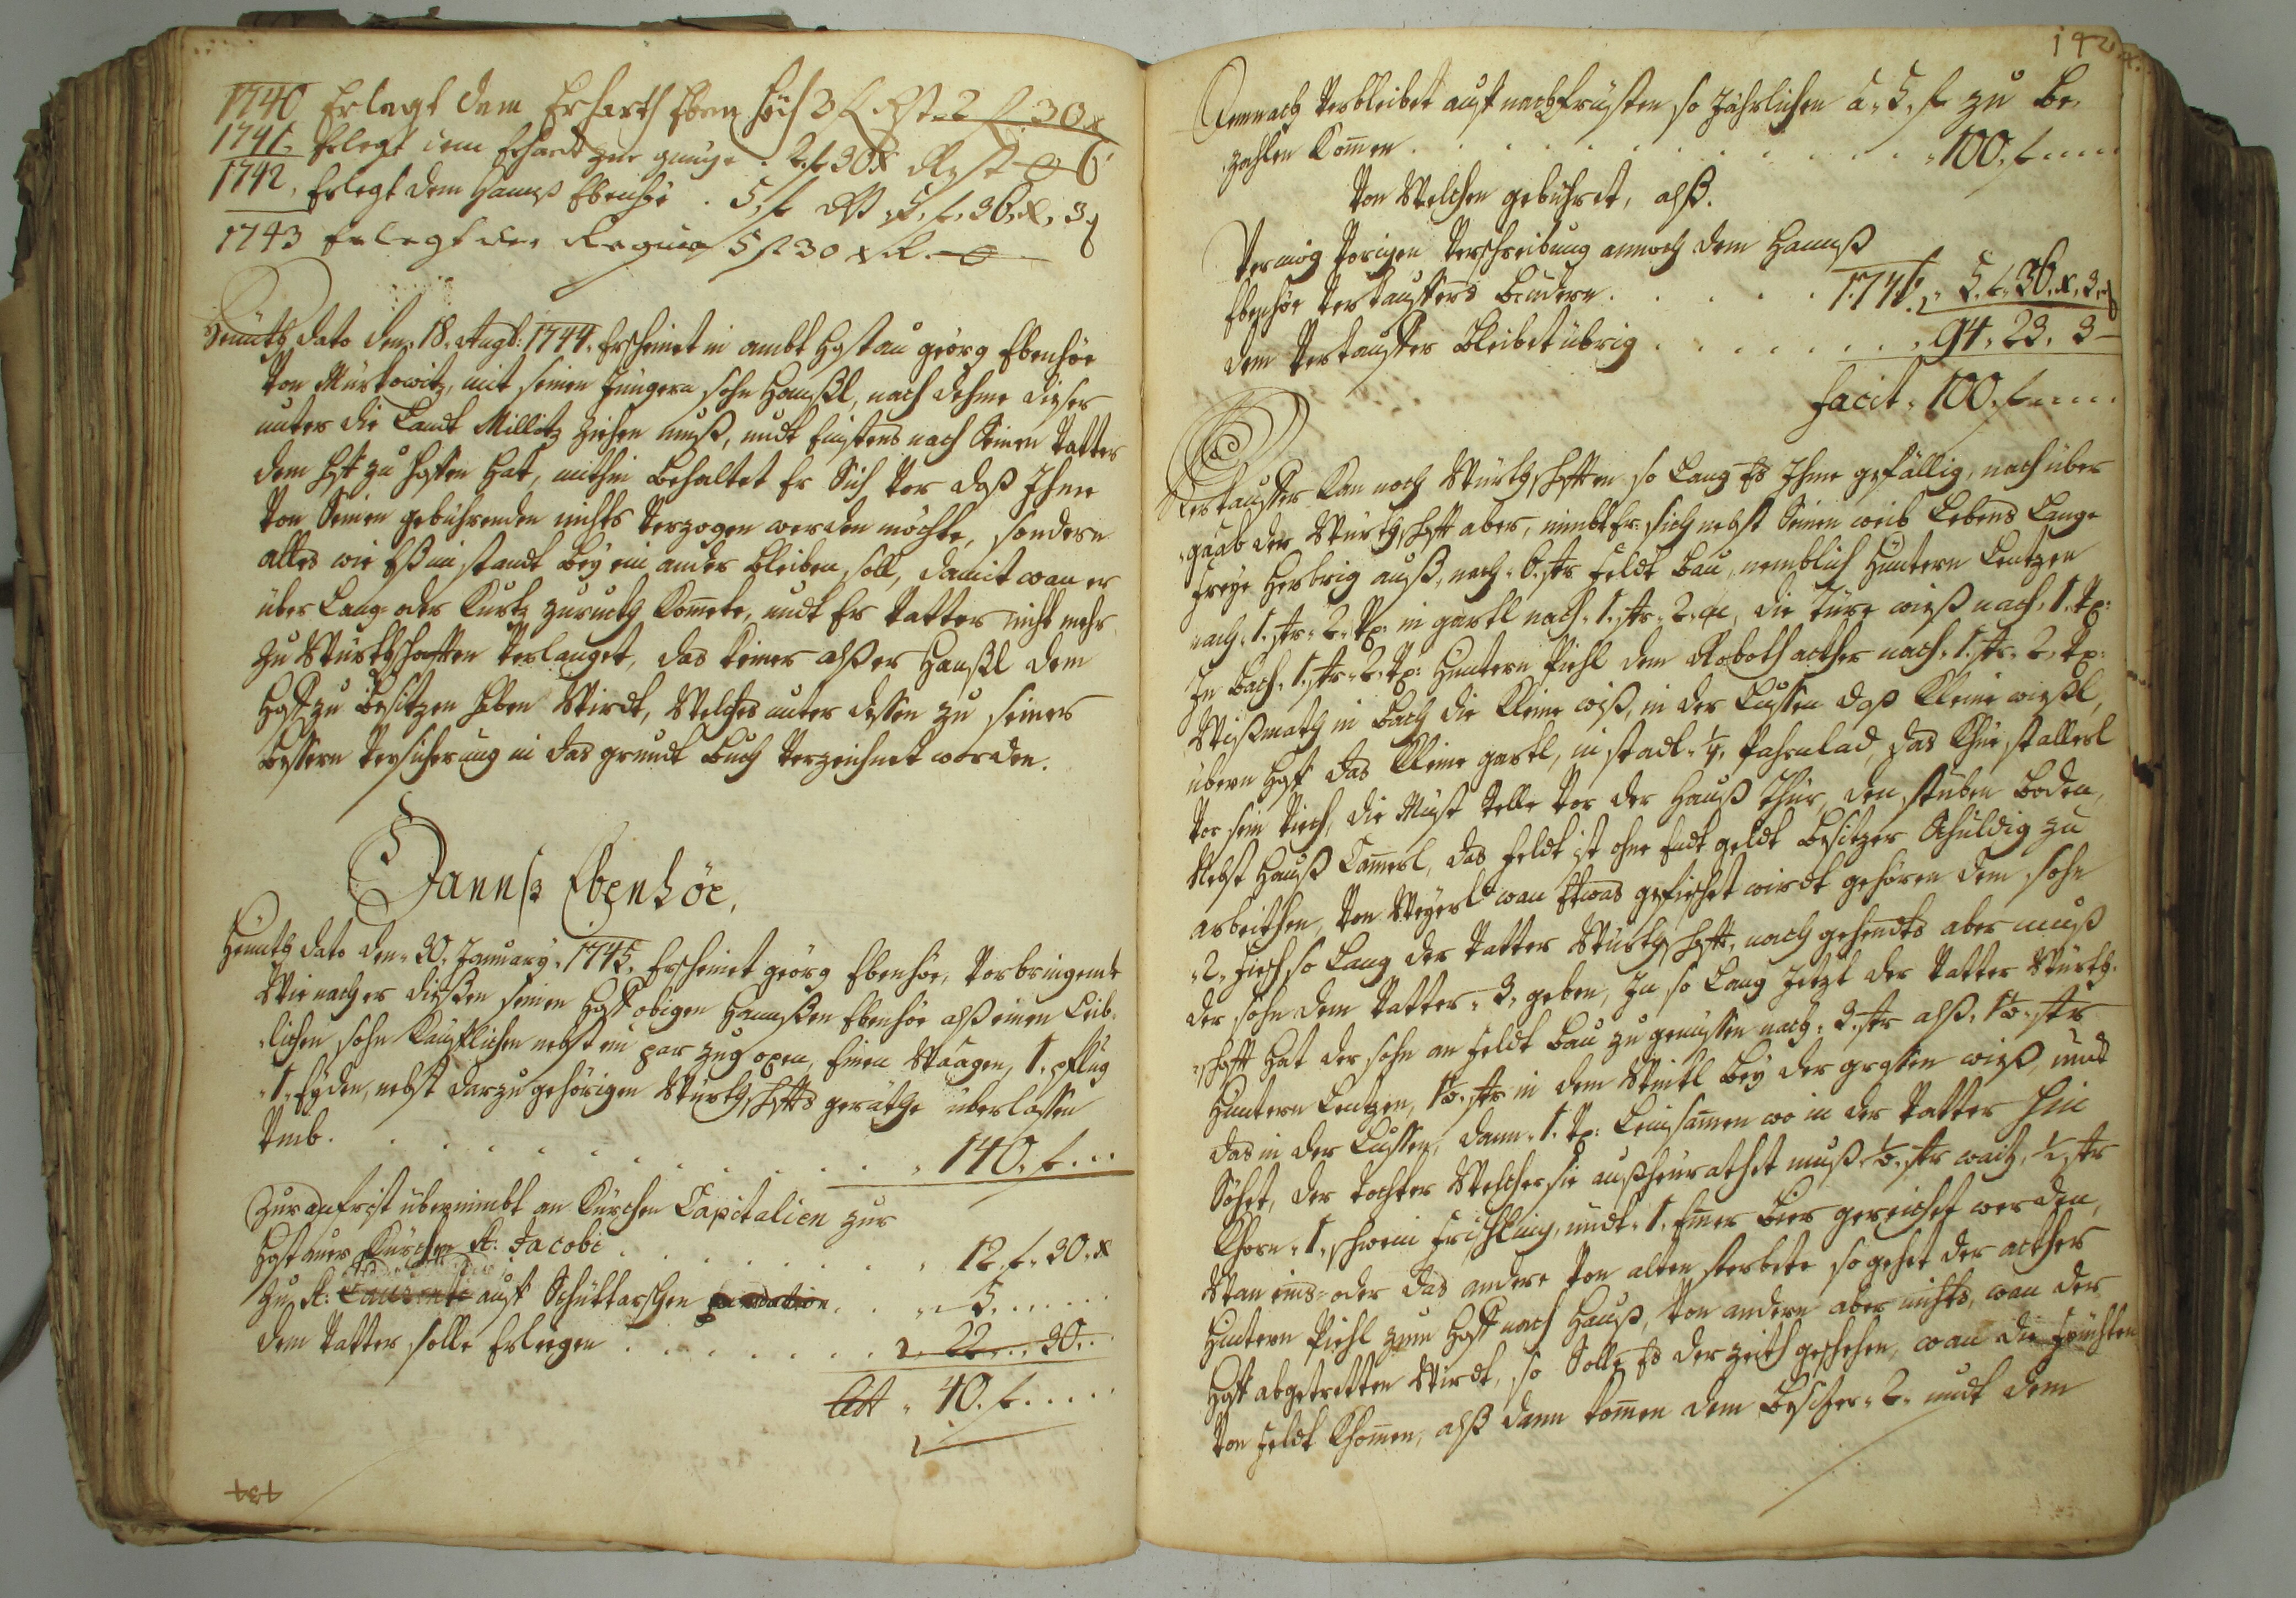 1740 Erlegt dem Erharth Eben höe 3 f Rst. 2 f 30 x
1741. Erlegt dem Erhardt zur genüge . 2 f 30 x Rest 0
1742. Erlegt dem Hannß Ebenhöe . 5. f Rst. 5. f. 36. x. 3 d
1743 Erlegt der 5 f 30 x R. 0
Heunth dato den. 18. Augt: 1744. Erscheinet in ambt Hostau georg Ebenhöe
Von Mürkowitz, mit seinen Jüngern sohn Hanßl, nach dehme dieser
unter die Landt Millitz ziehen muß, undt Einstens nach Seinen Vatter
dem Hoff zu hoffen hat, mithin behaltet Er Sich Vor daß Ihme
Von Seinen gebührenden nichts Verzogen werden möchte, sondern
alles wie Eß im standt bey ein ander bleiben soll, damit wan er
über Lang- oder Kurtz zuruckh Kommete, undt Er Vatter nicht mehr
zu Würthschafften Verlanget, das keiner alß er Hanßl dem
Hoff zu besitzen haben Wirdt, Welches unter dessen zu seiner
bessern Versicherung in das grundt buch Verzeichnet worden.
Hannß Ebenhöe,
Heunth dato den. 30. January. 1745. Erscheinet georg Ebenhöe, Vorbringendt
Wie nach er dießen seinen Hoff obigen Hannßen Ebenhöe alß einen Leib-
lichen sohn Käufflichen nebst ein par zug oxen, Einen Waagen, 1. pflug
1. Eyden, nebst darzu gehörigen Würthschaffts geräthe überlassen
Vmb . . . . . . . 140. f. . .
Zur anfrist übernimbt an Kürchen Capitalien zur
Hostauer Kürchen St: Jacobi . . . . . 12. f. 30. x
Zu St: Laurenti auff Schüttarschen fundation . . . 5. . . .
dem Vatter solle Erlegen . . . . . 22. . . 30. .
Lat. 40. f. . . .
434
142
Demnach Verbleibet auff nachfrüsten so Jährlichen a. 5. f zu be-
zahlen Kommen . . . . . . . 100. f. . . .
Von Welchen gebühret, alß.
Vermög Vorigen Verschreibung annoch dem Hannß
Ebenhöe Verkauffers brudern . . . . . 174 5. f. 36. x. 3. d
dem Verkauffer bleibet übrig . . . . . 94. 23. 3
facit. 100. f. . . .
Verkauffer kan noch Würthschafften so lang Es Ihme gefällig, nach über-
gaab der Würthschafft aber, nimbt Er sich nebst Seinen weib Lebens Lange
freye Herbrig auß, nach. 6. str feldt bau, nemblich Hüntern Lentzen
nach. 1. str. 2. Vrt: in gartl nach. 1. str. 2. die Türe wieß nach. 1. Vrt:
In bach. 1. str. 2. Vrt: Hüntern Biehl dem Roboth acther nach. 1. str. 2. Vrt:
Wißmath in bach die kleine wiß, in der Lussen daß kleine wießl,
übern Hoff das kleine gartl, in stadl 1/4. Fahrulad, das Khüe stallerl
Vor sein Viech, die Müst telle Vor der Hauß thür, den stuben boden,
Nebst Hauß Cammerl, das feldt ist ohne Endt geldt besitzer Schuldig zu
arbeithen, Von Weyerl wan Etwas gefischet wirdt gehören dem sohn
2. fisch so lang der Vatter Würthschafft, nach gehendts aber muß
der sohn dem Vatter. 3. geben, In so lang Jetzt der Vatter Würth-
schafft hat der sohn an feldt bau zu genüssen nach. 3. str alß. 1½. str
Huntern Lentzen, 1½. str in dem Winkl bey der grossen wieß, und
das in der Lussen, dann. 1. Vrt: Leinsammen wo in der Vatter hin
Söhet, der tochter Welcher sie außheurathet muß. ½. str waitz. ½. str
Khorn. 1. schwein frischling, undt. 1. Emer bier gereichet werden,
Wan eins- oder das andere Von alten sterbete so gehet der acther
Hüntern Biehl zum Hoff nach Hauß, Von andern aber nichts, wan der
Hoff abgetretten Wirdt, so Solle Es der zeith geschehen, wan die früchten
Von feldt Khommen, alß dann kommen dem besitzer. 2. undt dem